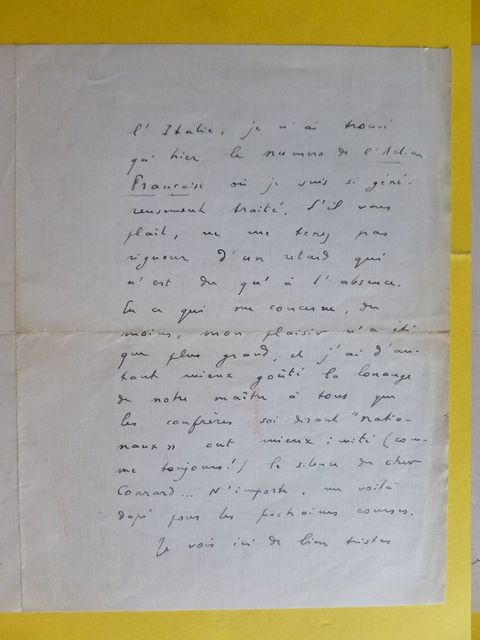 l'Italie, je n'ai trouvé
qu'hier le numéro de l'Action
Française où je suis si géné-
reusement traité. S'il vous
plaît, ne me tenez pas
rigueur d'un retard qui
n'est du qu'à l'absence.
En ce qui me concerne, du
moins, mon plaisir n'a été
que plus grand, et j'ai d'au-
tant mieux goûté la louange
de notre maître à tous que
les confrères soi-disant "natio-
naux" ont mieux imité (com-
me toujours!) le silence du cher
Conrard... N'importe, me voilà
dopé pour les prochaines courses.
Je vois ici de bien tristes